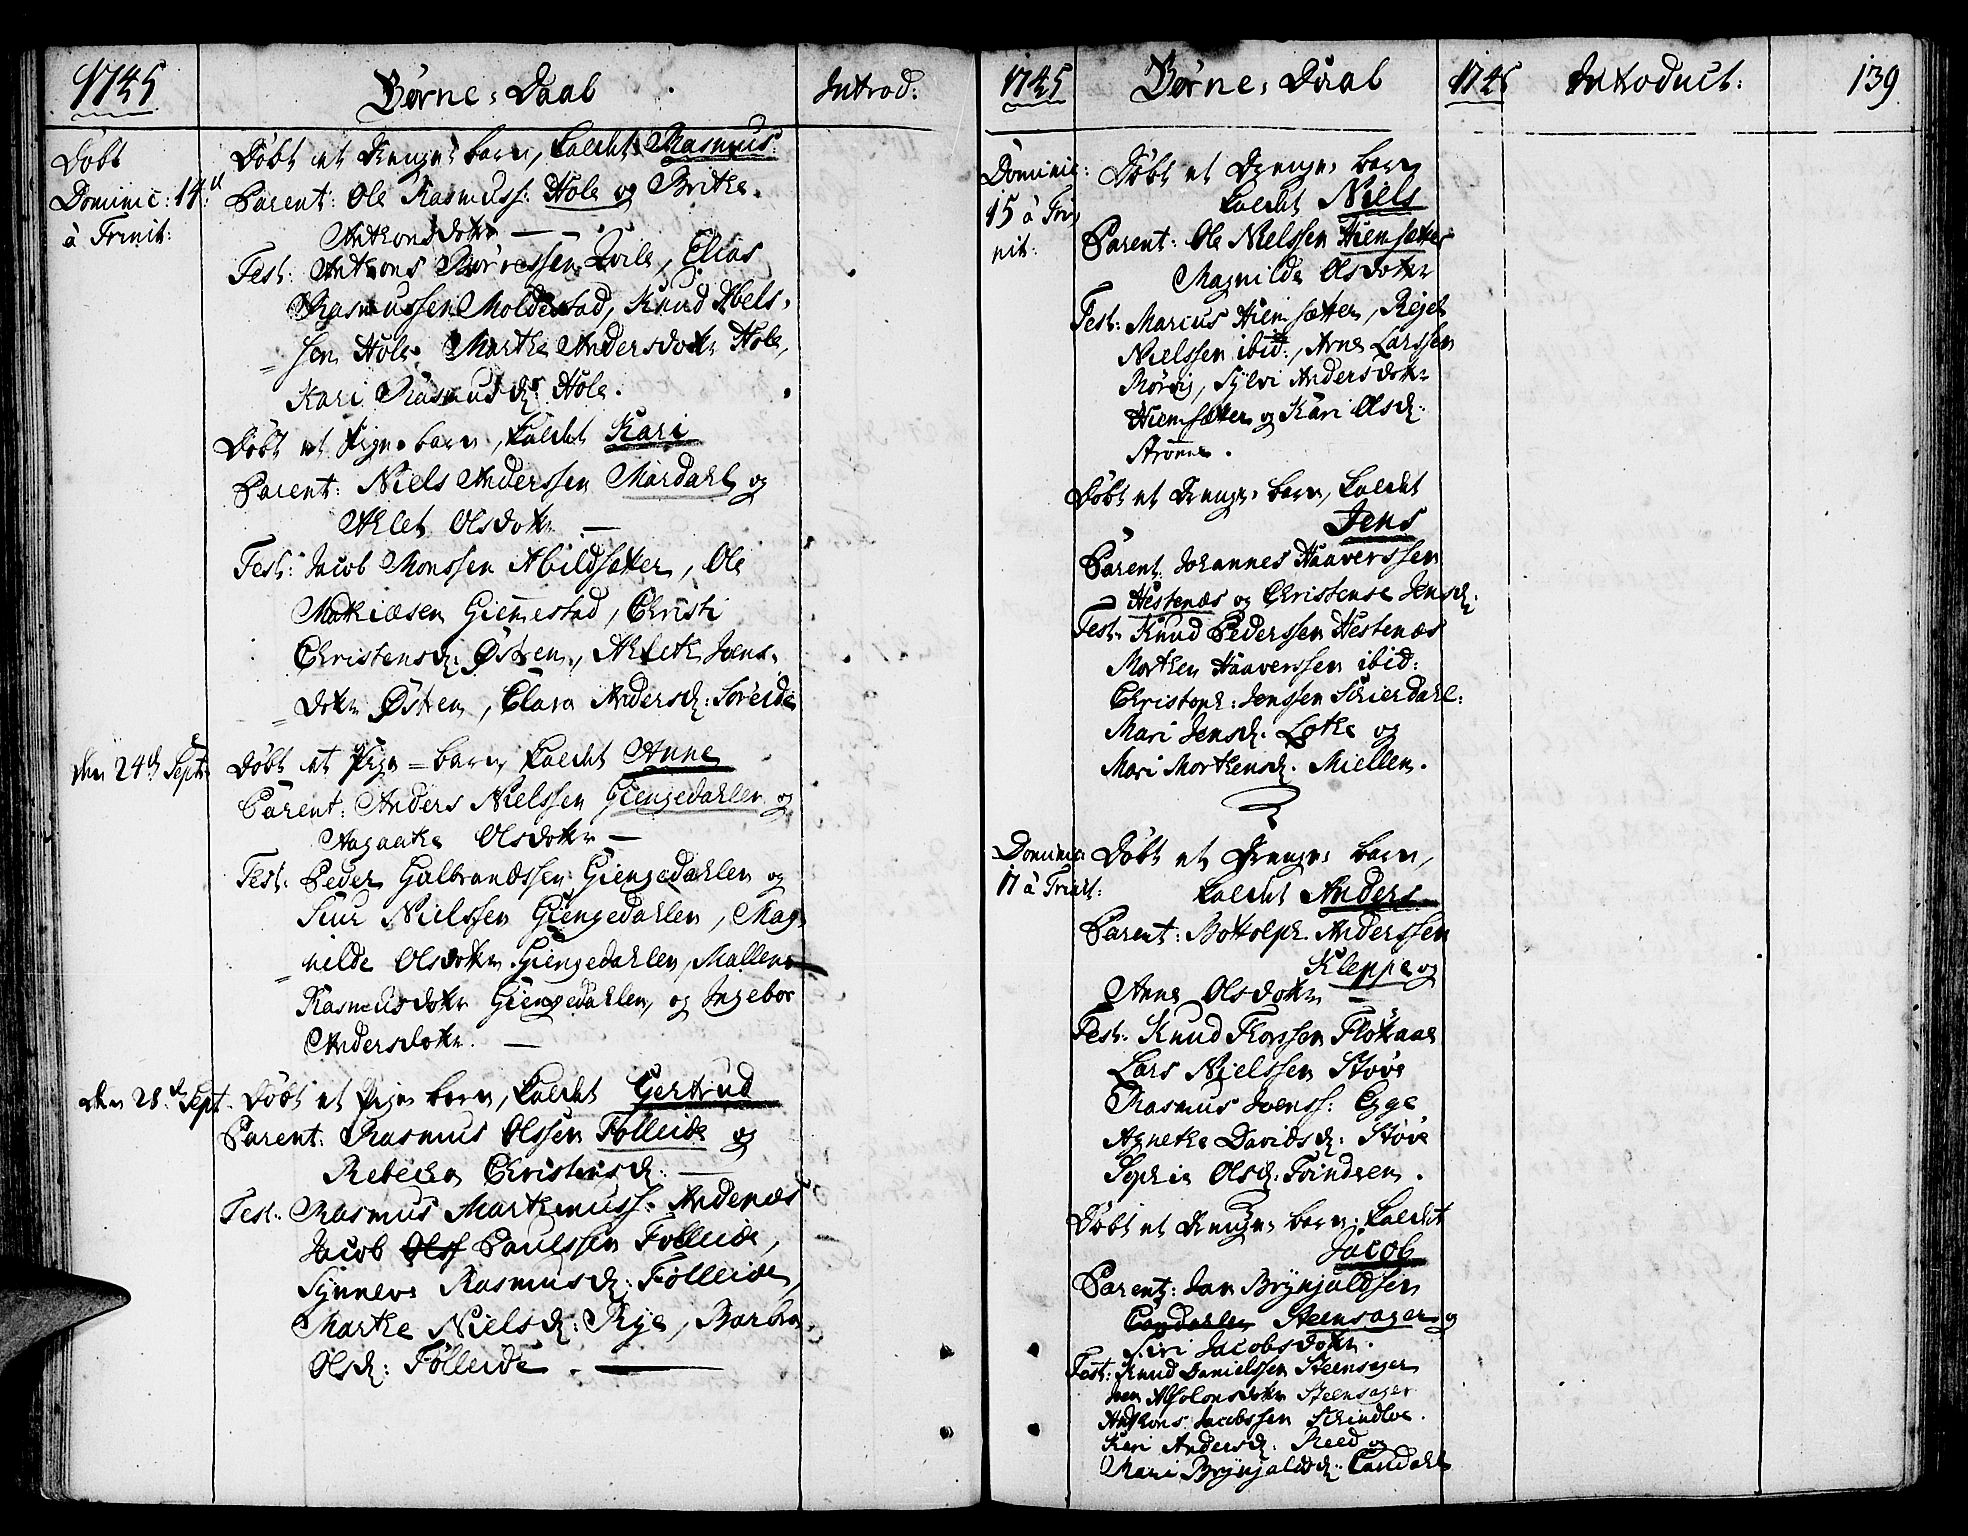 1745
Børne-Daab
Introd:
Døbt
Dominic: 14.
à Trinit:
Døbt et Drenge-barn, kaldet Rasmus.
Parent: Ole Rasmuss: Hole og Brithe
Anthonsdotr —
Test: Anthons Børressen Qvile, Elias
Rasmussen Moldestad, Knud Abels-
sen Hole. Marthe Andersdotr Hole,
Kari Rasmusdr Hole.
Døbt et Pige-barn, kaldet Kari
Parent: Niels Anderssen Mardahl og
Ahlet Olsdotr —
Test: Jacob Monssen Abildsæter, Ole
Mathiæsen Gimmestad, Christi
Christensdr: Østen, Ahleth Joens-
dotr Østen, Clara Andersdr: Søreide
Den 24de Sept:
Døbt et Pige-barn kaldet Anne
Parent: Anders Nielssen Giengedahlen og
Aagaathe Olsdotr —
Test: Peder Gulbrandssen Giengedahlen og
Siur Nielssen Giengedahlen, Mag-
nilde Olsdotr Giengedahlen, Mallene
Rasmusdotr Giengedahlen, og Ingebor
Andersdotr. —
Den 28de Sept.
Døbt et Pige barn, kaldet Gertrud
Parent: Rasmus Olssen Følleide og
Rebecha Christensdr: —
Test: Rasmus Marthinuss: Andenæs
Jacob Olss Poulssen Følleide,
Synneve Rasmusdr: Følleide,
Marthe Nielsdr: Rye, Barbra
Olsdr: Følleide. —
1745
Børne-Daab
1745
Introduct:
139
Dominic:
15 à Tri-
nit:
Døbt et Drenge-barn
kaldet Niels
Parent: Ole Nielssen Hiemsæter
Magnilde Olsdotr
Test: Marcus Hiemsætter, Rejel
Nielssen ibid:, Arne Larssen
Rørvig, Sylvi Andersdotr
Hiemsæter og Kari Olsdr:
Strømme.
Døbt et Drenge-barn, kaldet
Jens
Parent: Johannes Haaverssen
Hestenæs og Christense Jensdr:
Test: Knud Pederssen Hestenæs
Morthen Haaverssen ibid:
Christoph: Jenssen Schierdahl:
Mari Jensdr. Lothe og
Mari Morthensdr. Miellem.
Dominic:
17 à Trinit:
Døbt et Drenge-barn,
kaldet Anders
Parent: Bottolph Anderssen
Kleppe og
Anne Olsdotr —
Test: Knud Thorssen Flotvaae
Lars Nielssen Støve
Rasmus Joenss: Egge
Agnethe Davidsdr: Støve
Sophia Olsdr: Tvindren.
Døbt et Drenge-barn: kaldet
Jacob
Parent: Jan Brynjuldsen
Candahlen Steensager og
Siri Jacobsdotr.
Test: Knud Danielssen Steensager
Absolonsdotr Steensager
Anthons Jacobssen Schindloe.
Kari Andersdr. Reed og
Mari Brynjuldsdr: Candahl